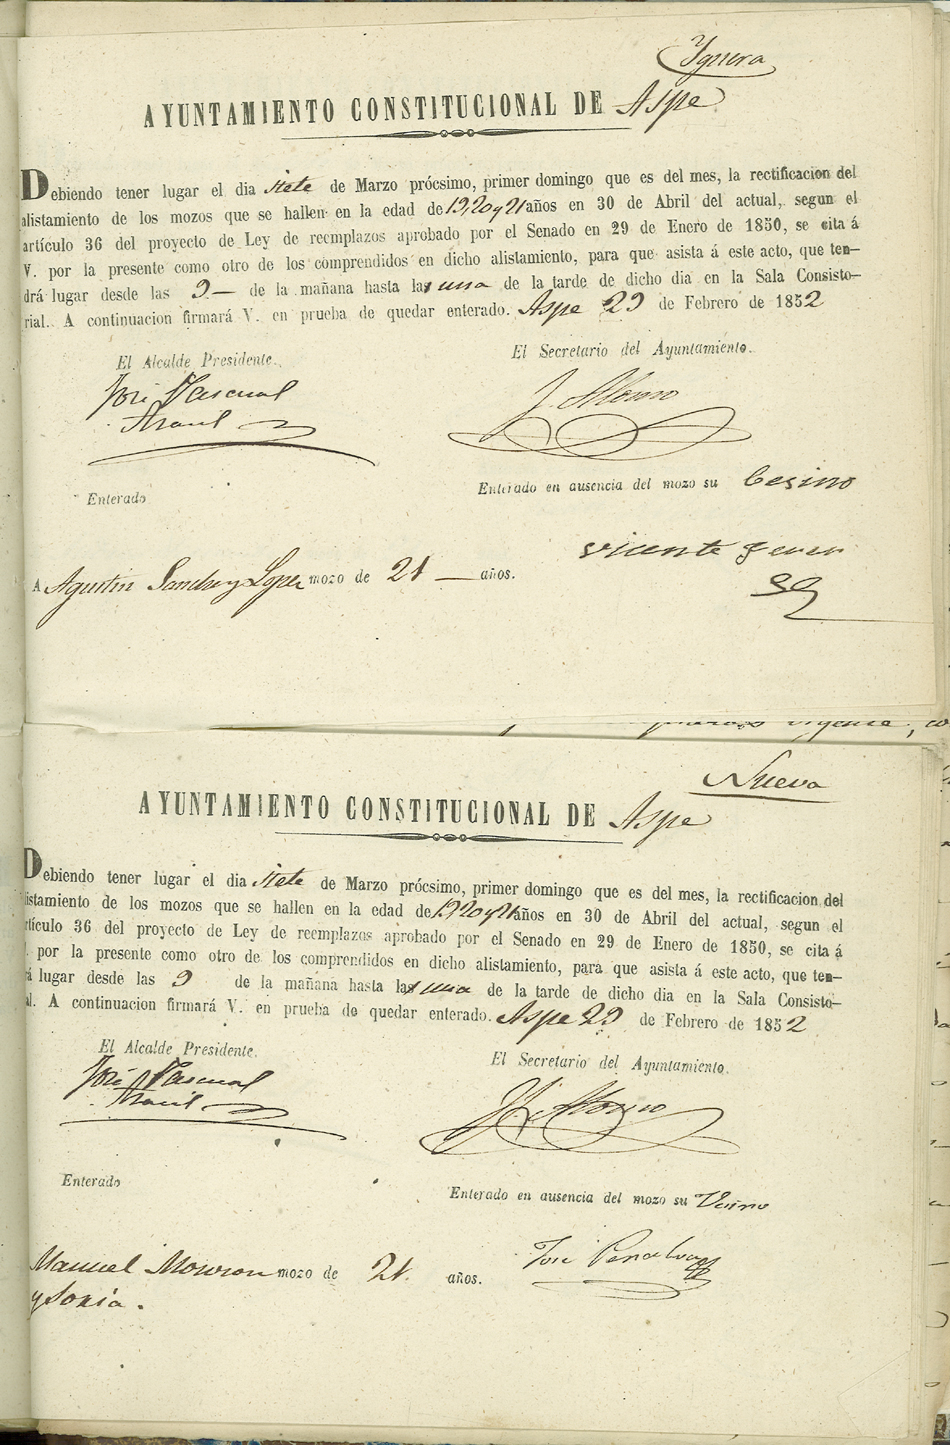 Ygnera
AYUNTAMIENTO CONSTITUCIONAL DE Aspe
Debiendo tener lugar el dia siete de Marzo prócsimo, primer domingo que es del mes, la rectificacion del
alistamiento de los mozos que se hallen en la edad de 19,20 y 21 años en 30 de Abril del actual, segun el
artículo 36 del proyecto de Ley de reemplazos aprobado por el Senado en 29 de Enero de 1850, se cita á
V. por la presente como otro de los comprendidos en dicho alistamiento, para que asista á este acto, que ten-
drá lugar desde las 9 — de la mañana hasta las una de la tarde de dicho dia en la Sala Consisto-
rial. A continuacion firmará V. en prueba de quedar enterado. Aspe 29 de Febrero de 1852
El Alcalde Presidente.
El Secretario del Ayuntamiento.
José Pascual
J. Alonso
Enterado
Enterado en ausencia del mozo su besino
vicente
A Agustin Sanchez y Lopez mozo de 21 — años.
Nueva
AYUNTAMIENTO CONSTITUCIONAL DE Aspe
Debiendo tener lugar el dia siete de Marzo prócsimo, primer domingo que es del mes, la rectificacion del
listamiento de los mozos que se hallen en la edad de 19,20 y 21 años en 30 de Abril del actual, segun el
rtículo 36 del proyecto de Ley de reemplazos aprobado por el Senado en 29 de Enero de 1850, se cita á
. por la presente como otro de los comprendidos en dicho alistamiento, para que asista á este acto, que ten-
rá lugar desde las 9 de la mañana hasta las una de la tarde de dicho dia en la Sala Consisto-
al. A continuacion firmará V. en prueba de quedar enterado. Aspe 29 de Febrero de 1852
El Alcalde Presidente.
El Secretario del Ayuntamiento.
José Pascual
J. Alonso
Enterado
Enterado en ausencia del mozo su Vecino
Manuel mozo de 21. años.
José
y Soria.